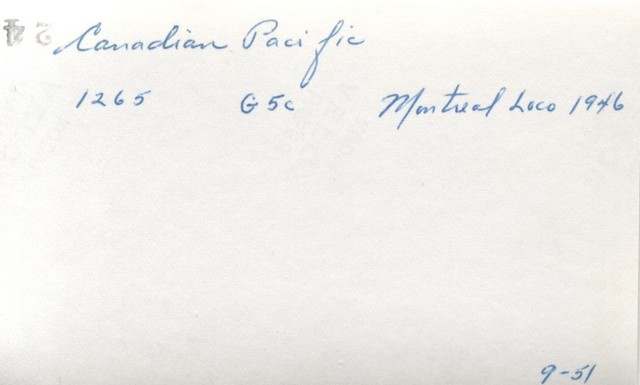 Canadian Pacific
1265 G5c Montreal Loco 1946
9-51